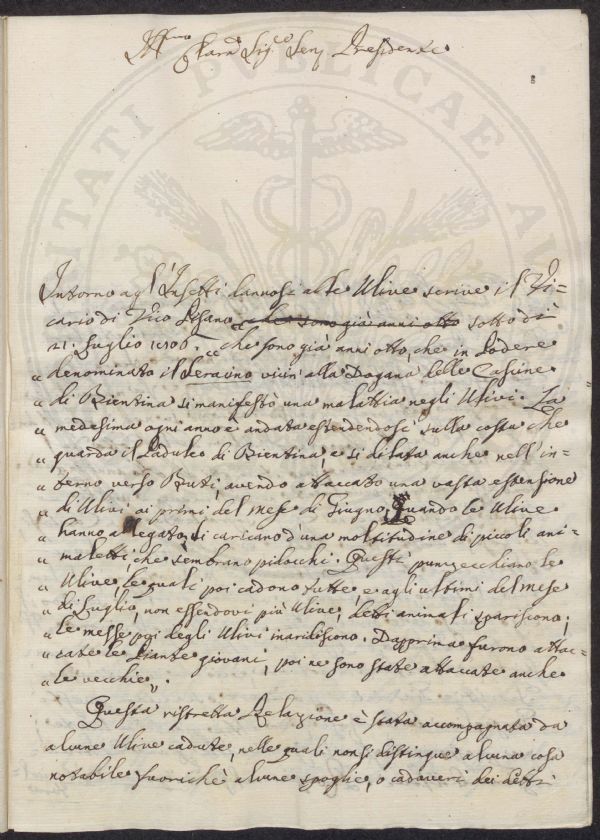 Ill.mo
Chiar.mo Sig.re Sen.re Presidente
Intorno agl'Insetti dannosi alle Ulive scrive il Vi=
cario di Vico Pisano che sono già anni otto sotto dì
21. Luglio 1806. "che sono già anni otto, che in Podere
" denominato il Seravno vicin'alla Dogana delle Cascine
" di Bientina si manifestò una malattia negli Ulivi. La
" medesima ogni anno è andata estendendosi sulla costa che
" guarda il Padule di Bientina, e si dilata anche nell'in=
" terno verso Buti, avendo attaccato una vasta estensione
" di Ulivi ai primi del mese di Giugno, quando le Ulive
" hanno allegato, si caricano d'una moltitudine di piccoli ani=
" maletti, che sembrano pidocchi. Questi punzecchiano le
" Ulive, le quali poi cadono tutte e agli ultimi del mese
" di Luglio, non essendovi più Ulive, detti animali spariscono;
" le messe poi degli Ulivi inaridiscono. Dapprima furono attac=
" cate le Piante giovani, poi ne sono state attaccate anche
" le vecchie".
Questa ristretta Relazione è stata accompagnata da
alcune Ulive cadute, nelle quali non si distingue alcuna cosa
notabile fuorichè alcune spoglie, o cadaveri dei detti